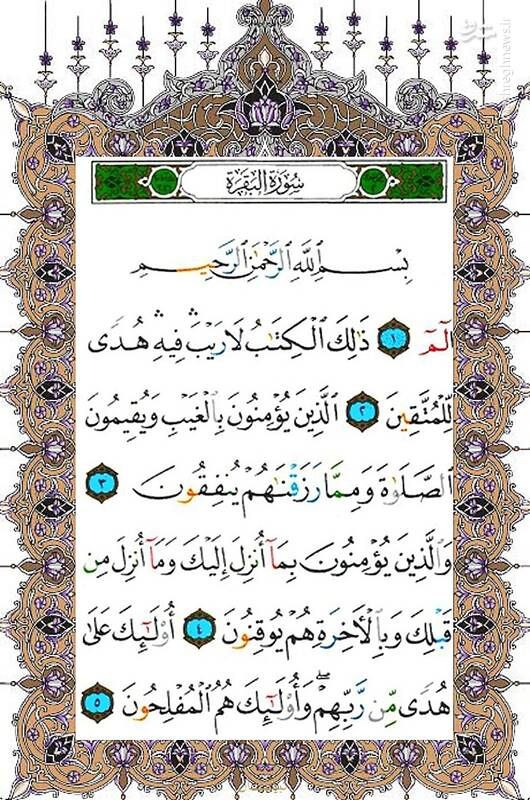 سُورَةُ البَقَرَة
بِسْمِ ٱللَّهِ ٱلرَّحْمَٰنِ ٱلرَّحِيمِ
الٓمٓ ١ ذَٰلِكَ ٱلْكِتَٰبُ لَا رَيْبَ ۛ فِيهِ ۛ هُدًى
لِّلْمُتَّقِينَ ٢ ٱلَّذِينَ يُؤْمِنُونَ بِٱلْغَيْبِ وَيُقِيمُونَ
ٱلصَّلَوٰةَ وَمِمَّا رَزَقْنَٰهُمْ يُنفِقُونَ ٣
وَٱلَّذِينَ يُؤْمِنُونَ بِمَآ أُنزِلَ إِلَيْكَ وَمَآ أُنزِلَ مِن
قَبْلِكَ وَبِٱلْأَخِرَةِ هُمْ يُوقِنُونَ ٤ أُوْلَٰٓئِكَ عَلَىٰ
هُدًى مِّن رَّبِّهِمْ ۖ وَأُوْلَٰٓئِكَ هُمُ ٱلْمُفْلِحُونَ ٥